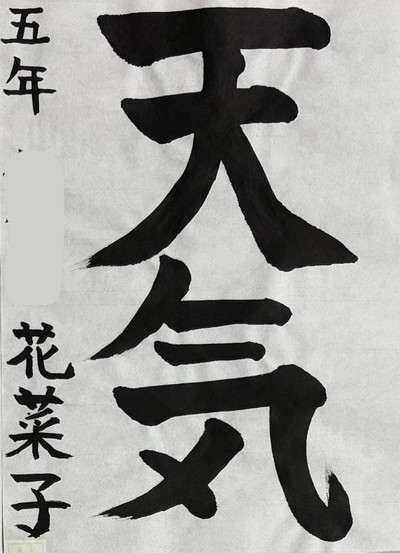 天気
五年
花菜子